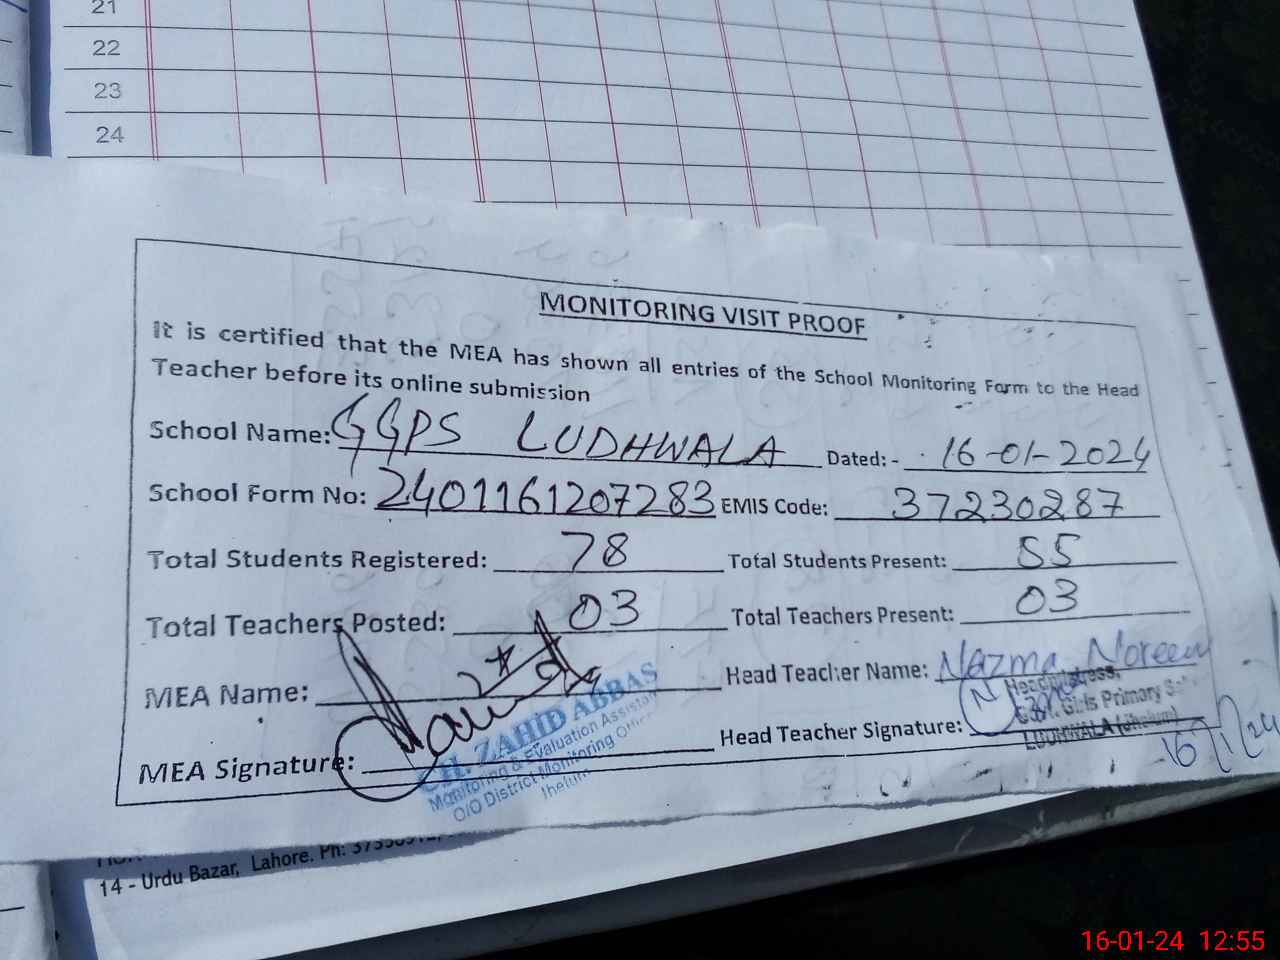 21
22
23
24
MONITORING VISIT PROOF
It is certified that the MEA has shown all entries of the School Monitoring Form to the Head
Teacher before its online submission
School Name: GGPS LUDHWALA Dated: - 16-01-2024
School Form No: 2401161207283 EMIS Code: 37230287
Total Students Registered: 78 Total Students Present: 55
Total Teachers Posted: 03 Total Teachers Present: 03
MEA Name: Head Teacher Name: Nazma Noreen
MEA Signature: Head Teacher Signature:
CH. ZAHID ABBAS
Monitoring & Evaluation Assistant
O/O District Monitoring Officer
Jhelum
Headmistress,
Govt. Girls Primary
LUDHWALA (Jhelum)
16/1/24
14 - Urdu Bazar, Lahore. Ph:
16-01-24 12:55